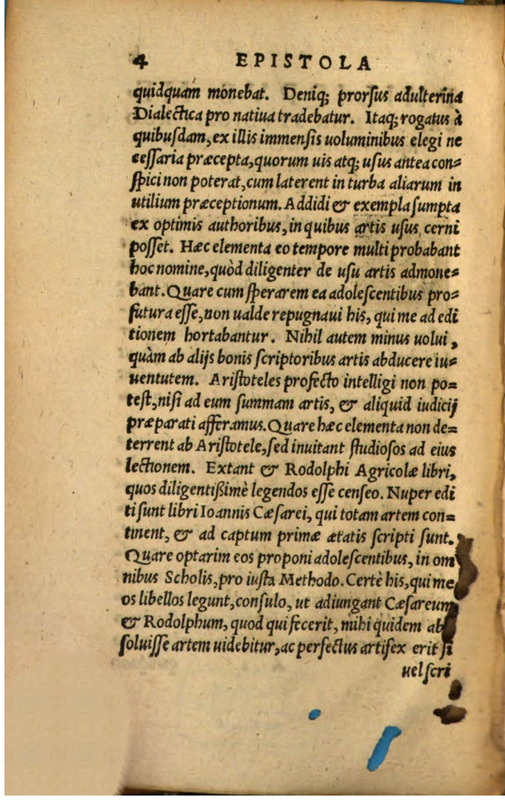 4 EPISTOLA
quidquam monebat. Deniq; prorsus adulterina
Dialectica pro natiua tradebatur. Itaq; rogatus à
quibusdam, ex illis immensis uoluminibus elegi ne
cessaria præcepta, quorum uis atq; usus antea con=
spici non poterat, cum laterent in turba aliarum in
utilium præceptionum. Addidi & exempla sumpta
ex optimis authoribus, in quibus artis usus cerni
posset. Hæc elementa eo tempore multi probabant
hoc nomine, quòd diligenter de usu artis admone=
bant. Quare cum sperarem ea adolescentibus pro=
futura esse, non ualde repugnaui his, qui me ad edi
tionem hortabantur. Nihil autem minus uolui,
quàm ab alijs bonis scriptoribus artis abducere iu=
uentutem. Aristoteles profecto intelligi non po=
test, nisi ad eum summam artis, & aliquid iudicij
præparati afferamus. Quare hæc elementa non de=
terrent ab Aristotele, sed inuitant studiosos ad eius
lectionem. Extant & Rodolphi Agricolæ libri,
quos diligentißimè legendos esse censeo. Nuper edi
ti sunt libri Ioannis Cæsarei, qui totam artem con=
tinent, & ad captum primæ ætatis scripti sunt.
Quare optarim eos proponi adolescentibus, in om
nibus Scholis, pro iusta Methodo. Certè his, qui me
os libellos legunt, consulo, ut adiungant Cæsareum
& Rodolphum, quod qui fecerit, mihi quidem ab
soluisse artem uidebitur, ac perfectus artifex erit si
uel scri